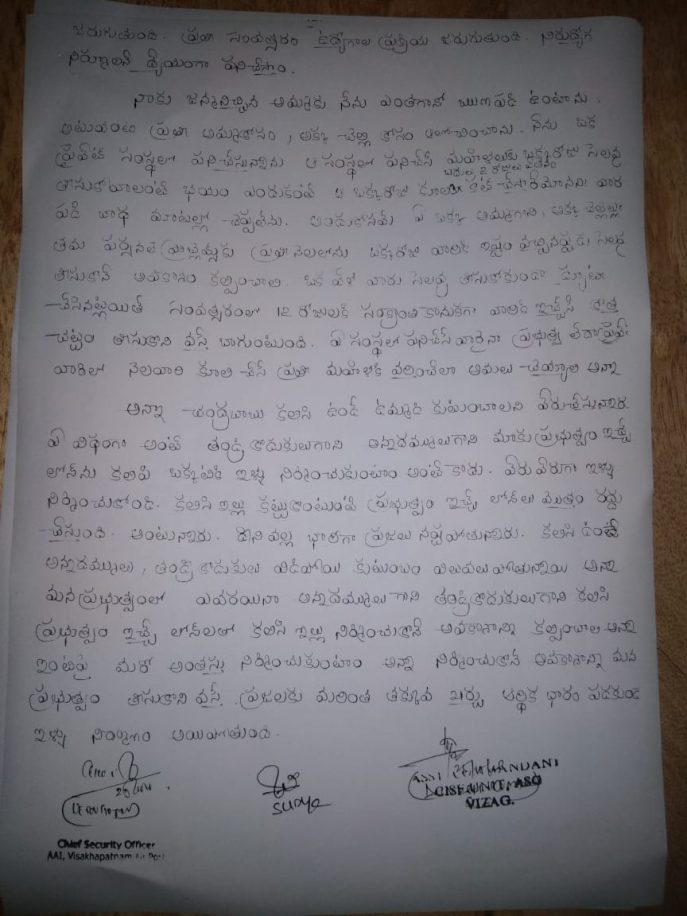 జరుగుతుంది. ప్రతి సంవత్సరం ఉద్యోగాల ప్రక్రియ జరుగుతుంది. నిరుద్యోగ
నిర్మూలనే ధ్యేయంగా పనిచేస్తాం.
నాకు జన్మనిచ్చిన అమ్మకు నేను ఎంతగానో ఋణపడి ఉంటాను.
అటువంటి ప్రతి అమ్మకోసం, అక్క చెల్లి కోసం ఆలోచించాను. నేను ఒక
ప్రైవేట్ సంస్థలో పనిచేస్తున్నాను ఆ సంస్థలో పనిచేసే మహిళలకు ఒక్కరోజు సెలవు
తీసుకోవాలంటే భయం ఎందుకంటే ఆ ఒక్కరోజు కూలీ బదులు 2 రోజులు కట్ చేస్తారేమోనని వారు
పడే బాధ మాటల్లో చెప్పలేను. అందుకోసమే ఏ ఒక్క అమ్మగాని, అక్క చెల్లెల్లు
తమ పర్సనల్ ప్రాబ్లమ్స్‌కు ప్రతి నెలలోను ఒక్కరోజు వారికి ఇష్టం వచ్చినప్పుడు సెలవు
తీసుకొనే అవకాశం కల్పించాలి. ఒక వేళ వారు సెలవు తీసుకోకుండా డ్యూటీ
చేసినట్లయితే సంవత్సరంలో 12 రోజులకి సంక్రాంతి కానుకగా వారికి ఇచ్చేసే కొత్త
చట్టం తీసుకొని వస్తే బాగుంటుంది. ఏ సంస్థలో పనిచేసే వారైనా ప్రభుత్వ లేదా ప్రైవేట్
వాటిలో నెలవారీ కూలి చేసే ప్రతి మహిళకి వర్తించేలా అమలు చెయ్యాలి అన్నా
అన్నా చంద్రబాబు కలిసి ఉండే ఉమ్మడి కుటుంబాలని వేరుచేస్తున్నారు
ఏ విధంగా అంటే తండ్రి కొడుకులుగాని అన్నదమ్ములుగాని మాకు ప్రభుత్వం ఇచ్చే
లోన్‌ను కలిపి ఒక్కటిగా ఇళ్ళు నిర్మించుకుంటాం అంటే కాదు. వేరు వేరుగా ఇళ్ళు
నిర్మించుకోండి. కలిసి ఇల్లు కట్టుకొంటుంటే ప్రభుత్వం ఇచ్చే లోన్‌లు మొత్తం రద్దు
చేస్తుంది. అంటున్నారు. దీని వల్ల భారీగా ప్రజలు నష్టపోతున్నారు. కలిసి ఉండే
అన్నదమ్ములు, తండ్రి కొడుకులు విడిపోయి కుటుంబం విలువలు పోతున్నాయి అన్నా
మన ప్రభుత్వంలో ఎవరయినా అన్నదమ్ములు గాని తండ్రికొడుకులుగాని కలిసి
ప్రభుత్వం ఇచ్చే లోన్‌లతో కలిసి ఇల్లు నిర్మించుకొనే అవకాశాన్ని కల్పించాలి అన్నా
ఇంటిపై మరో అంతస్తు నిర్మించుకుంటాం అన్నా నిర్మించుకొనే అవకాశాన్ని మన
ప్రభుత్వం తీసుకొని వస్తే. ప్రజలకు మరింత తక్కువ ఖర్చు ఆర్థిక భారం పడకుండ
ఇళ్ళు నిర్మాణం అయిపోతుంది.
Surya
CISF UNIT, ASG
VIZAG.
Chief Security Officer
AAI, Visakhapatnam Air Port